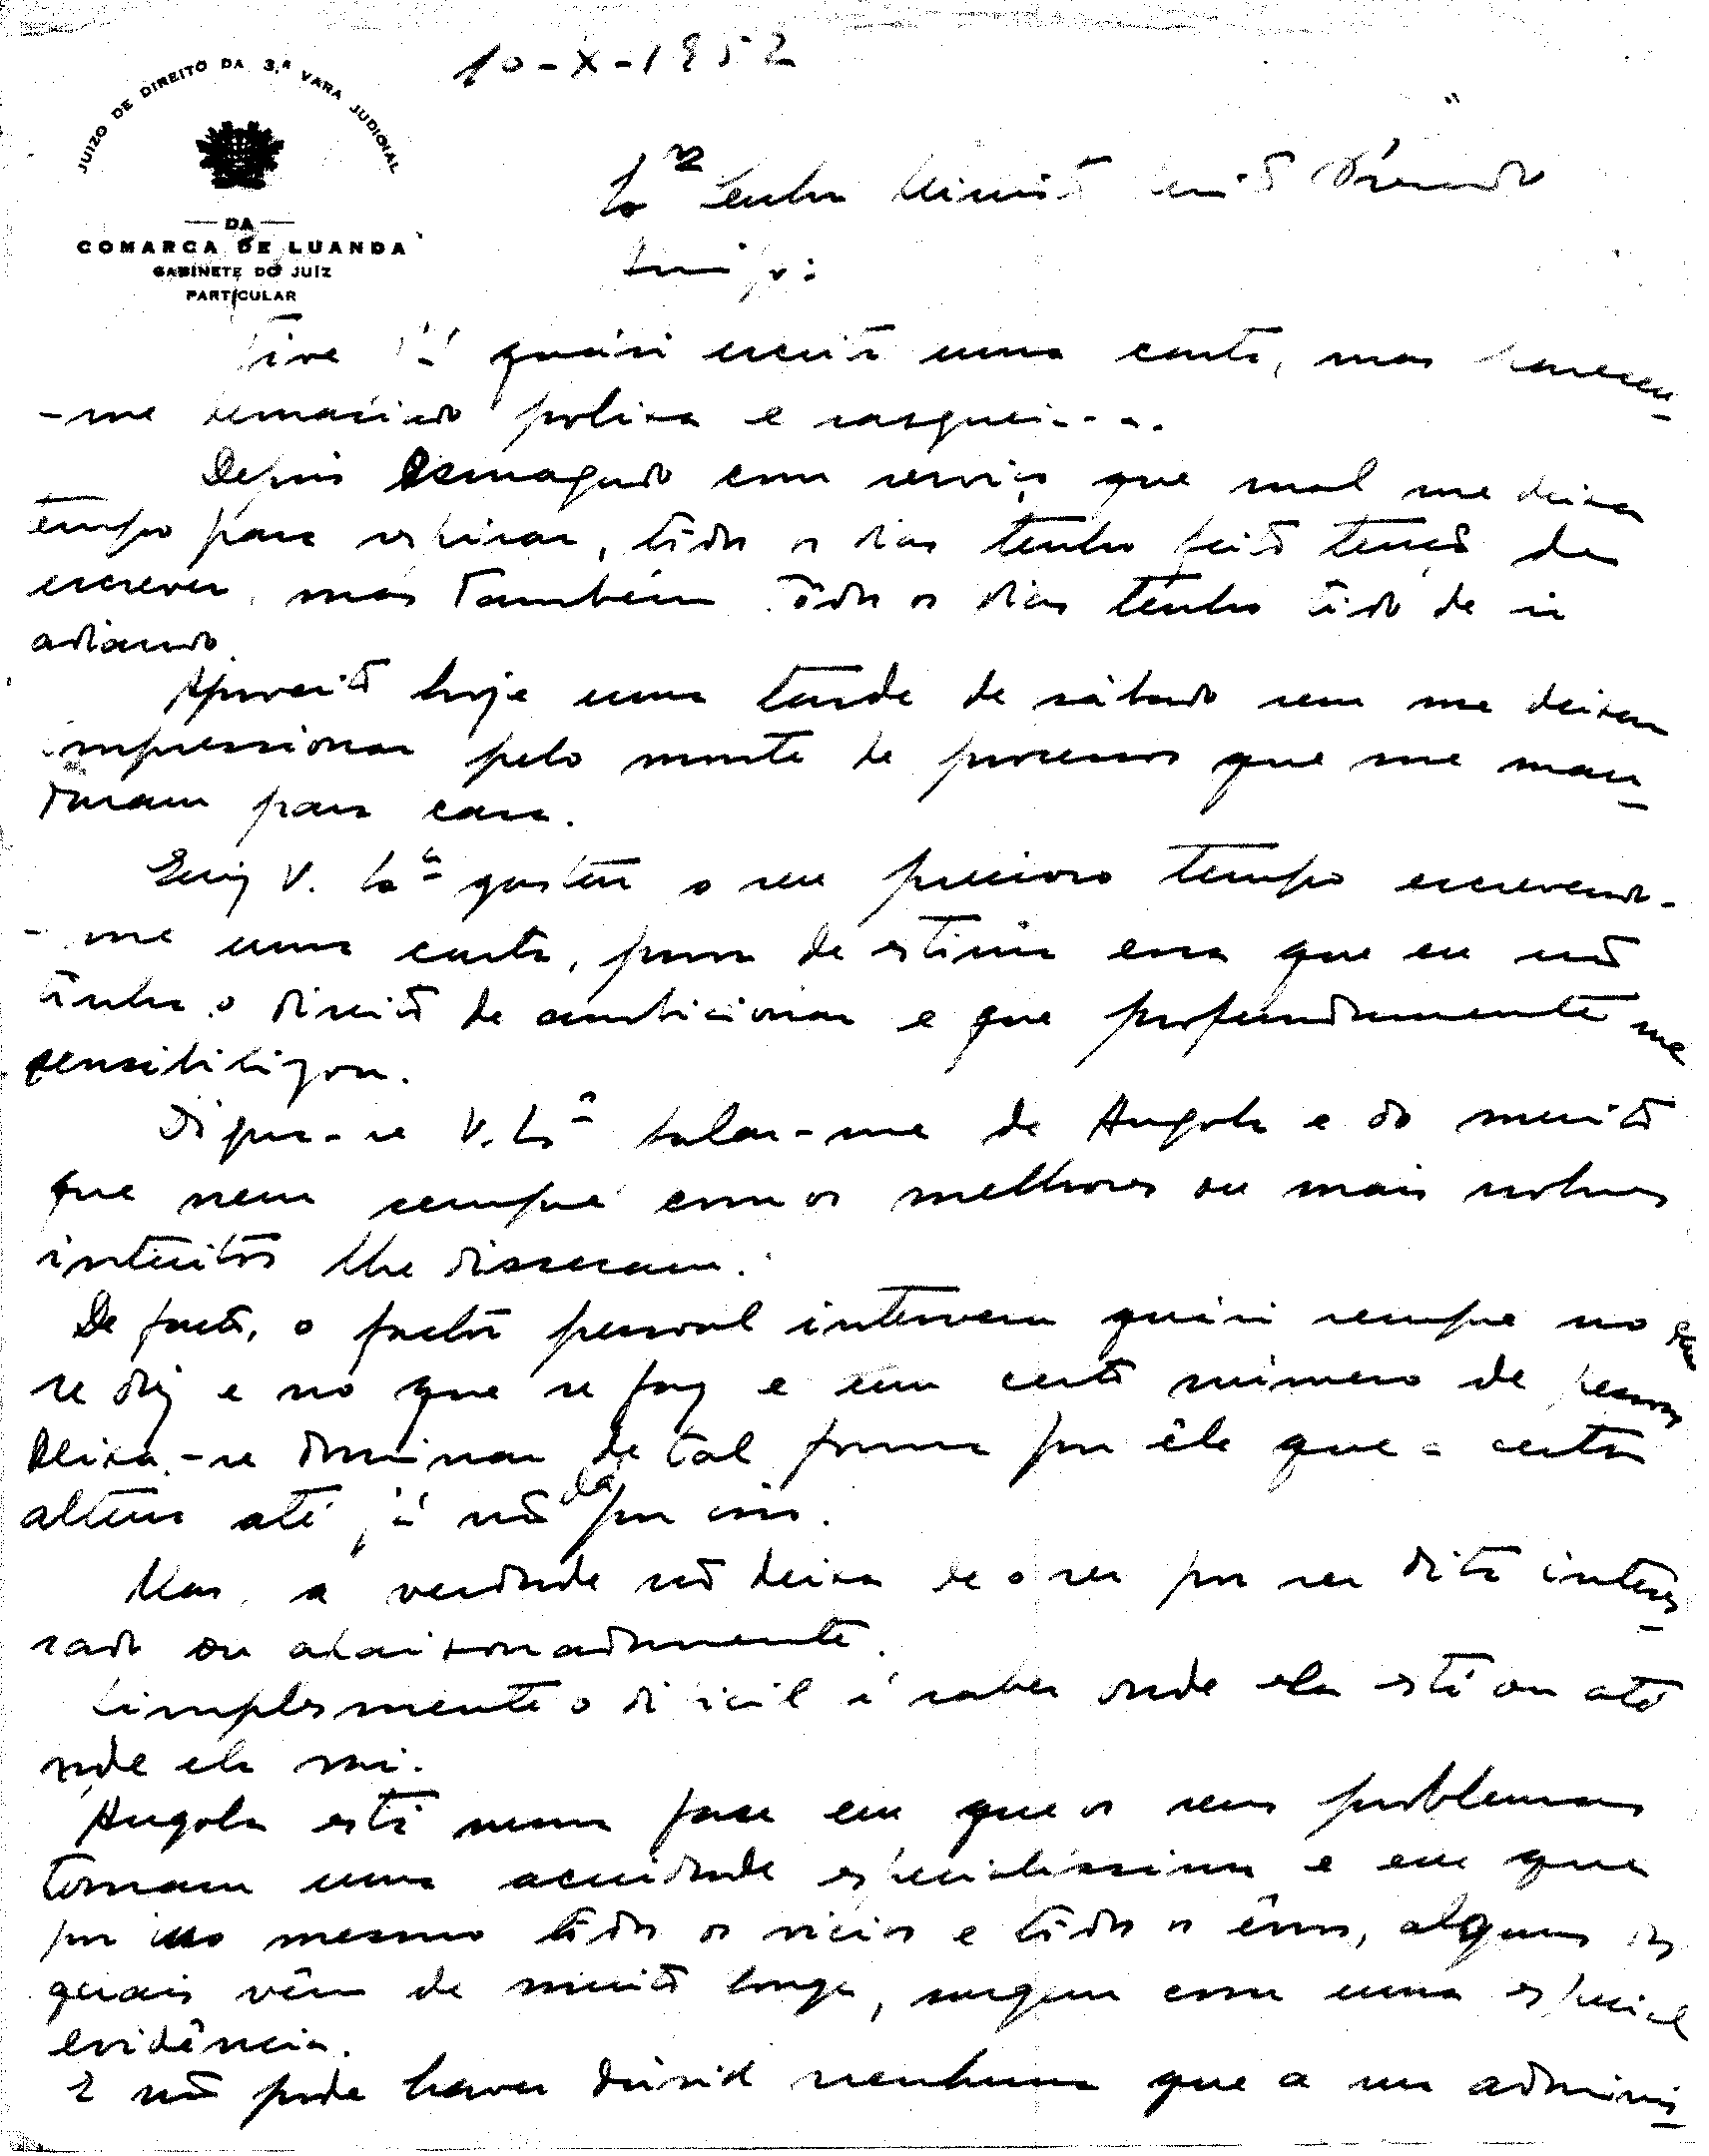 10-X-1952
JUIZO DE DIREITO DA 3.ª VARA JUDICIAL
DA
COMARCA DE LUANDA
GABINETE DO JUIZ
PARTICULAR
Senhor Ministro
Amigo:
Tive já quási escrita uma carta, mas pareceu-
-me demasiado prolixa e rasguei-a.
Depois esmagado com serviço que mal me deixa
tempo para respirar, todos os dias tenho feito tenção de
escrever, mas também todos os dias tenho tido de ir
adiando.
Aproveito hoje uma tarde de sábado sem me deixar
impressionar pelo monte de processos que me man-
daram para casa.
Quiz V. Exª gastar o seu precioso tempo escrevendo-
-me uma carta, prova de estima essa que eu não
tinha o direito de ambicionar e que profundamente me
sensibilizou.
Digna-se V. Exª falar-me de Angola e do muito
que nem sempre com os melhores ou mais nobres
intuitos lhe disseram.
De facto, o factor pessoal intervem quási sempre no que
se diz e no que se faz e um certo número de pessoas
deixa-se dominar de tal forma por êle que a certa
altura até já não dá por isso.
Mas, a verdade não deixa de o ser por ser dita interes-
sada ou apaixonadamente.
Simplesmente o dificil é saber onde ela está ou até
onde ela vai.
Angola está numa fase em que os seus problemas
tomam uma acuidade especialissima e em que
por isso mesmo todos os vicios e todos os êrros, alguns dos
quais vêm de muito longe, surgem com uma especial
evidência.
E não pode haver dúvida nenhuma que a sua adminis-